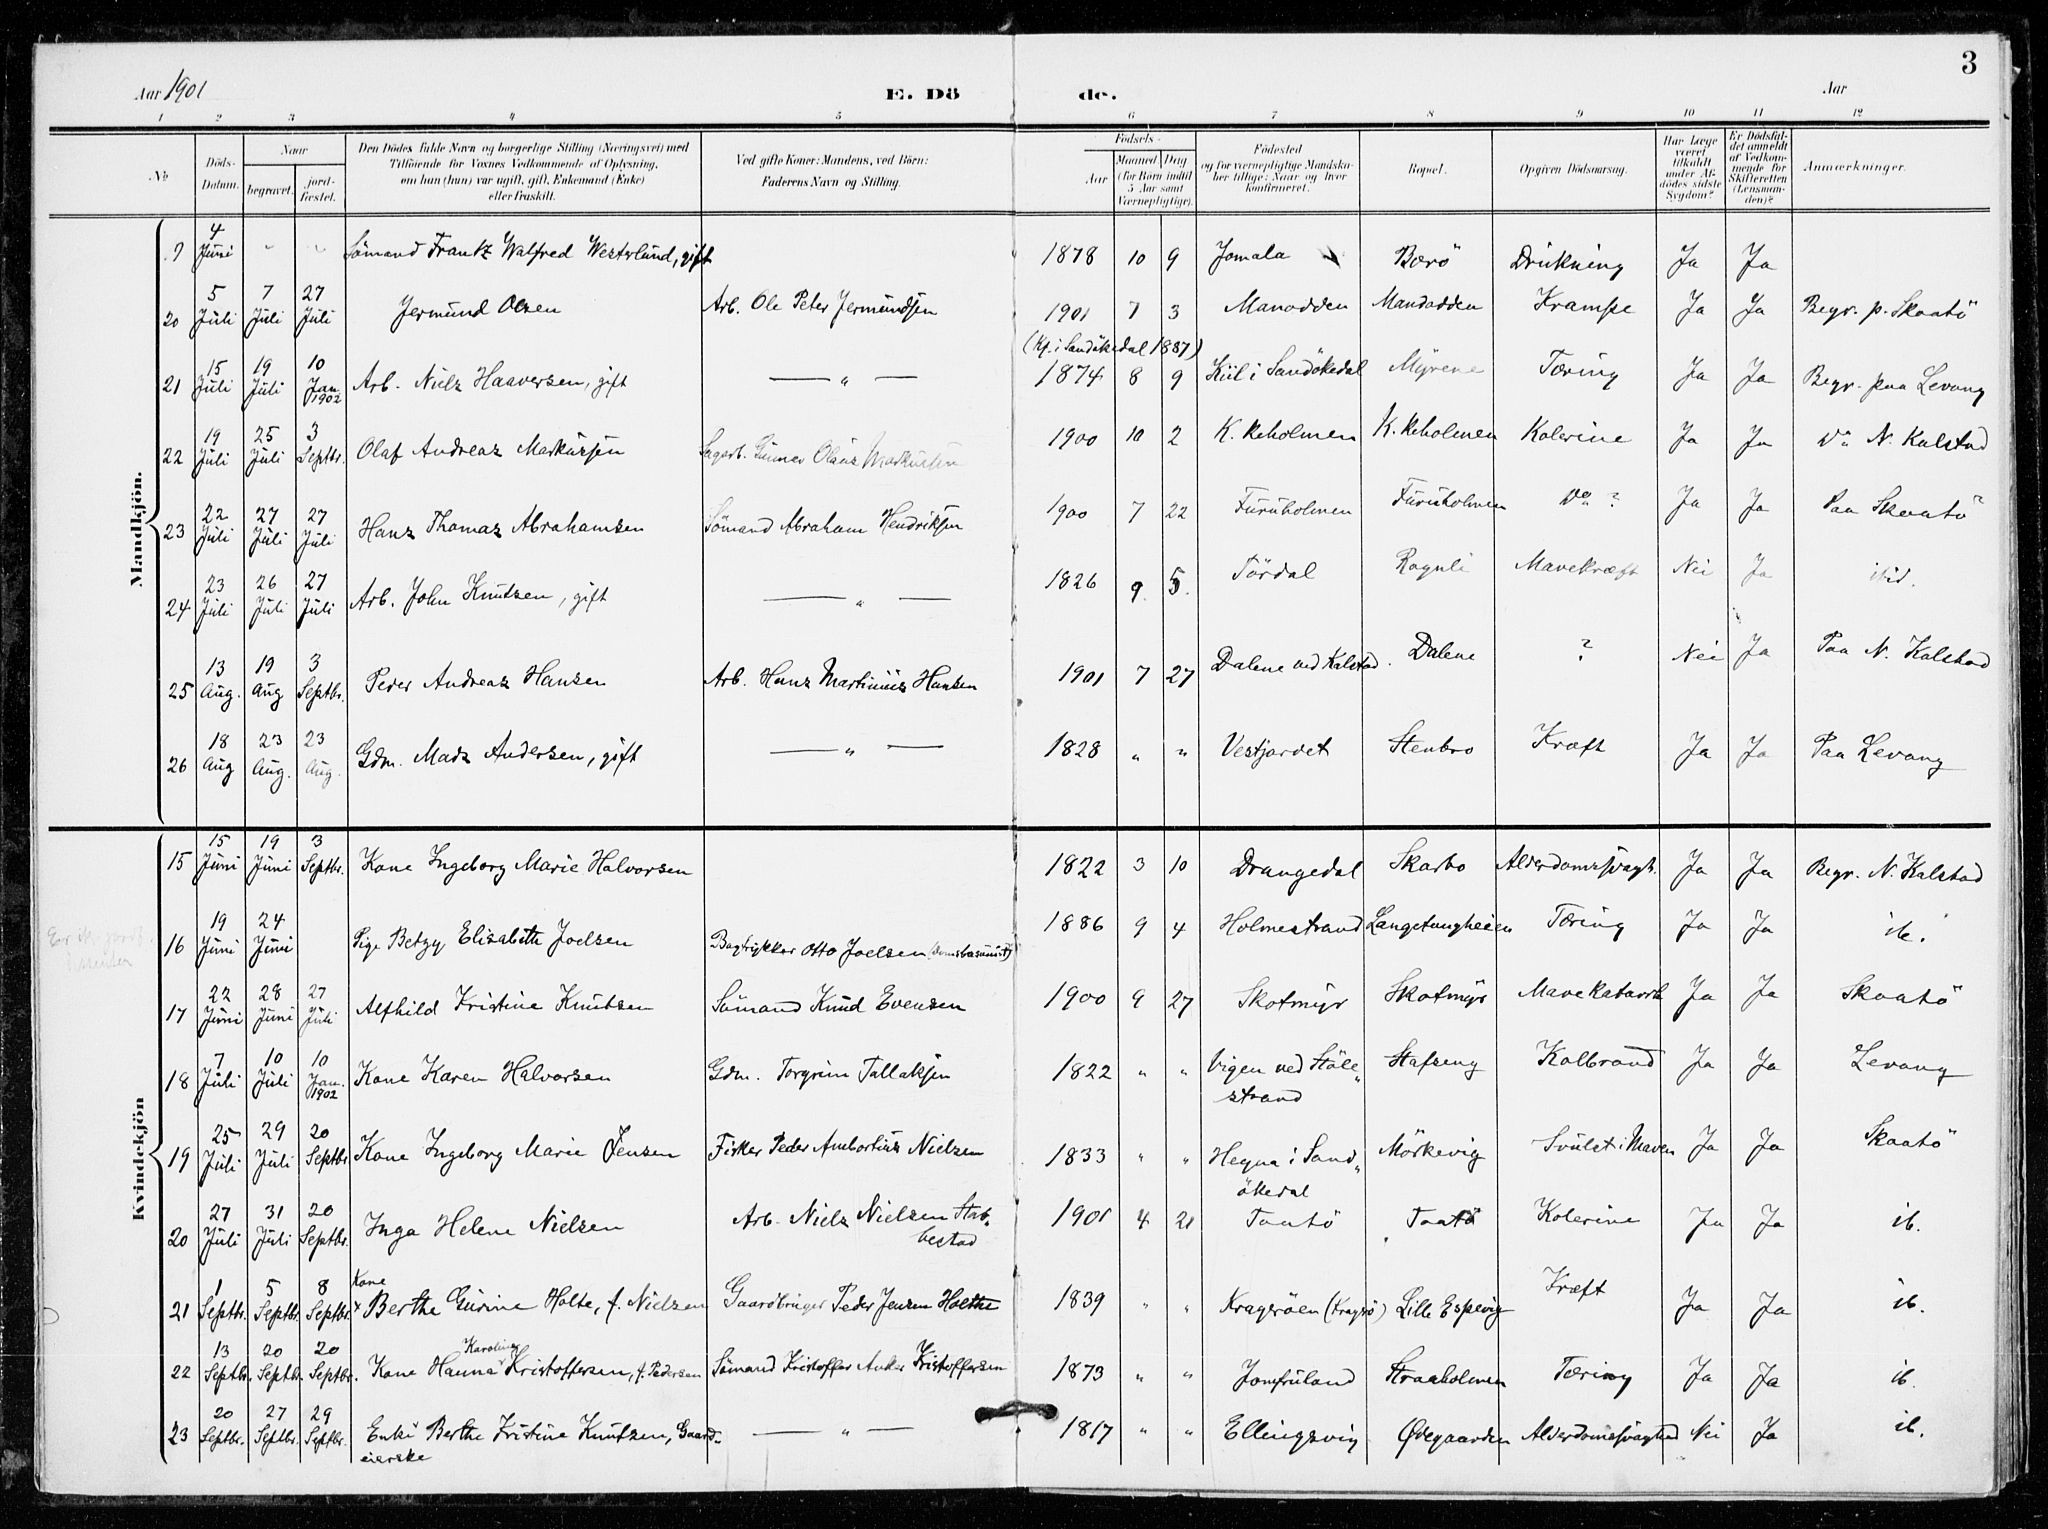 3
Aar 1901
E. Dö
de.
Aar
1 2 3 4 5 6 7 8 9 10 11 12
No
Döds-Datum.
Naar
begravet.
jord-fæstet.
Den Dödes fulde Navn og borgerlige Stilling (Næringsvei) med
Tilföiende for Voxnes Vedkommende af Oplysning,
om han (hun) var ugift, gift, Enkemand (Enke)
eller fraskilt.
Ved gifte Koner: Mandens, ved Börn:
Faderens Navn og Stilling.
Födsels-
Aar
Maaned Dag
(for Börn indtil
5 Aar samt
Værnepligtige).
Födested
og for værnepligtige Mandska-
ber tillige: Naar og hvor
konfirmeret.
Bopæl.
Opgiven Dödsaarsag.
Har Læge
været
tilkaldt
under Af-
dödes sidste
Sygdom?
Er Dödsfal-
det anmeldt
af Vedkom-
mende for
Skifteretten
(Lensman-
den)?
Anmærkninger.
Mandkjön.
4 Juni Sömand Frantz Walfred Westerlund, gift 1878 10 9 Jomala Borö Drukning Ja Ja
20 5 Juli 7 Juli 27 Juli Jermund Olsen Arb. Ole Peter Jermundsen 1901 7 3 Manodden Mandodden Krampe Ja Ja Begr. p. Skaatö
(Kf. i Sandökedal 1887)
21 15 Juli 19 Juli 10 Jan. 1902 Arb. Niels Haaversen, gift — „ — 1874 8 9 Kiil i Sandökedal Myrene Tæring Ja Ja Begr. paa Levang
22 19 Juli 25 Juli 3 Septbr. Olaf Andreas Markussen Sagarb. Gunner Olaus Markussen 1900 10 2 K. Reholmen K. Reholmen Kolerine Ja Ja Do N. Kalstad
23 22 Juli 27 Juli 27 Juli Hans Thomas Abrahamsen Sömand Abraham Hendriksen 1900 7 22 Furuholmen Furuholmen Do ? Ja Ja Paa Skaatö
24 23 Juli 26 Juli 27 Juli Arb. John Knutsen, gift — „ — 1826 9. 5. Tördal Rognli Mavekræft Nei Ja ibid.
25 13 Aug. 19 Aug 3 Septbr. Peder Andreas Hansen Arb. Hans Martinius Hansen 1901 7 27 Dalene ved Kalstad. Dalene ? Nei Ja Paa N. Kalstad
26 18 Aug 23 Aug. 23 Aug. Gdm. Mads Andersen, gift — „ — 1828 „ „ Vestjordet Stenbro Kræft Ja Ja Paa Levang
Kvindekjön
15 15 Juni 19 Juni 3 Septbr. Kone Ingeborg Marie Halvorsen 1822 3 10 Drangedal Skarbo Alderdomssvagh. Ja Ja Begr. N. Kalstad
16 19 Juni 24 Juni Pige Betzy Elisabeth Joelsen Bogtrykker Otto Joelsen 1886 9 4 Holmestrand Langetangheien Tæring Ja Ja ib.
17 22 Juni 28 Juni 27 Juli Alfhild Kristine Knutsen Sömand Knud Evensen 1900 9 27 Skotmyr Skotmyr Mavekatarrh Ja Ja Skaatö
18 7 Juli 10 Juli 10 Jan. 1902 Kone Karen Halvorsen Gdm. Torgrim Tallaksen 1822 „ „ Vigen ved Stöle„ Stafseng Kolbrand Ja Ja Levang
strand
19 25 Juli 29 Juli 20 Septbr Kone Ingeborg Marie Jensen Fisker Peder Ambortius Nielsen 1833 „ „ Hegna i Sand„ Mörkevig Svulst i Maven Ja Ja Skaatö
ökedal
20 27 Juli 31 Juli 20 Septbr. Inga Helene Nielsen Arb. Niels Nielsen Stab„ 1901 4 21 Taatö Taatö Kolerine Ja Ja ib.
bestad
21 1 Septbr. 5 Septbr. 8 Septbr. Kone Berthe Gurine Holte, f. Nielsen Gaardbruger Peder Jensen Holthe 1839 „ „ Kragerøen (Kragrö) Lille Espevig Kræft Ja Ja ib.
22 13 Septbr. 20 Septbr. 20 Septbr. Kone Hanna Karoline Kristoffersen, f. Pedersen Sömand Kristoffer Anker Kristoffersen 1873 „ „ Jomfruland Straaholmen Tæring Ja Ja ib.
23 20 Septbr. 27 Septbr. 29 Septbr. Enke Berthe Kristine Knutsen, Gaard- — „ — 1817 „ „ Ellingsvig Ødegaarden Alderdomssvaghed Nei Ja ib.
eierske